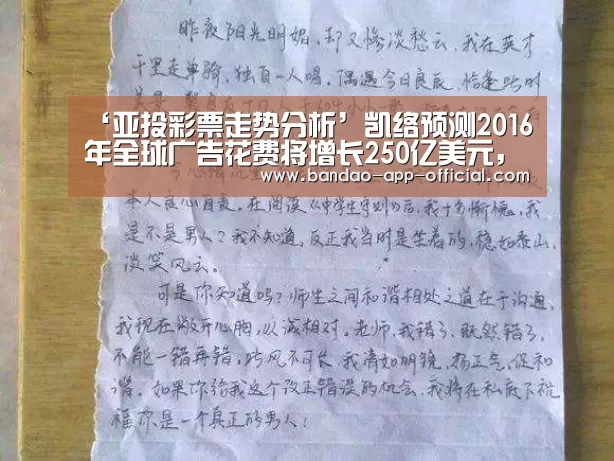 昨夜阳光明媚，却又惨淡愁云，我在英才
千里走单骑，独自一人喝，偶遇今日良辰，恰逢此时
‘亚投彩票走势分析’凯络预测2016
年全球广告花费将增长250亿美元，
www.bandao-app-official.com
本人良心自责，在阅读《中学生守则》后，我十分惭愧，我
是不是男人？我不知道，反正我当时是坐着的，稳如泰山，
谈笑风云。
可是你知道吗？师生之间和谐相处之道在于沟通，
我现在敞开心胸，以诚相对。老师，我错了，既然错了，
不能一错再错，此风不可长，我清如明镜，扬正气，促和
谐。如果你给我这个改正错误的机会，我将在私底下祝
福你是一个真正的男人！